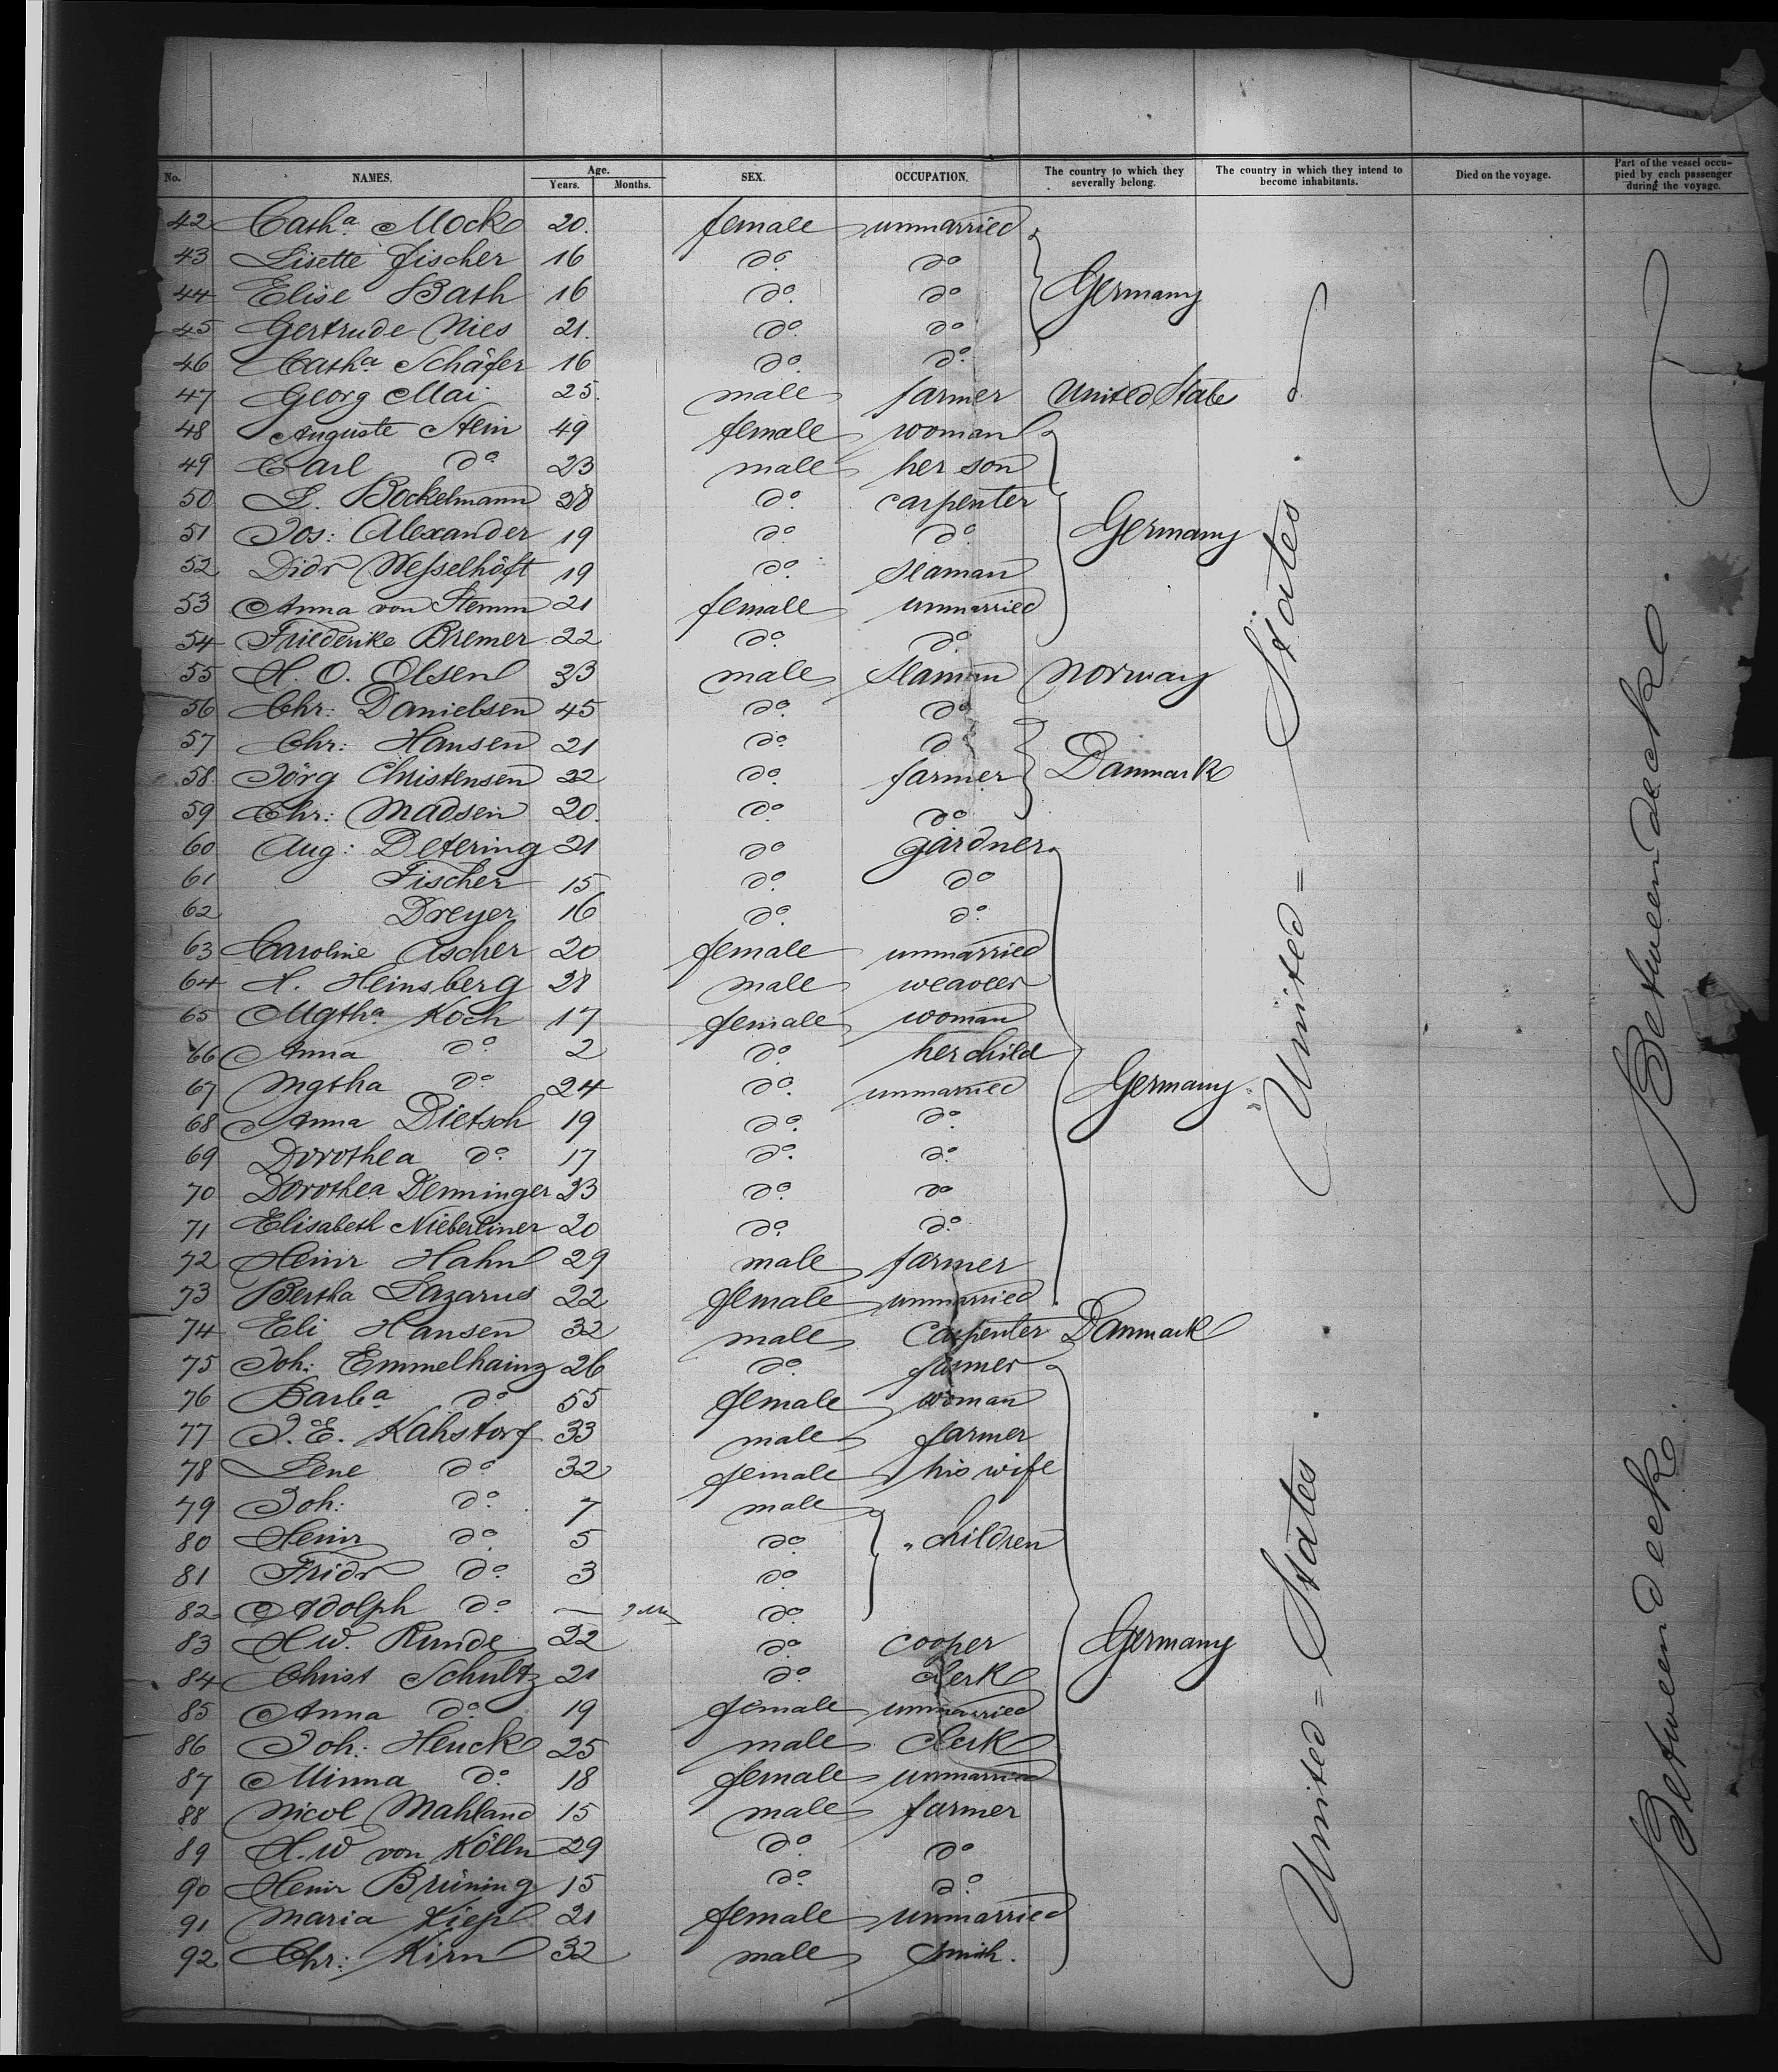 No. NAMES. Age. Years. Months. SEX. OCCUPATION. The country to which they severally belong. The country in which they intend to become inhabitants. Died on the voyage. Part of the vessel occupied by each passenger during the voyage.
42 Cath.ª Mock 20. female unmarried
43 Lisette Fischer 16 do. do
44 Elise Bath 16 do. do Germany
45 Gertrude Nies 21. do. do
46 Cath.ª Schäfer 16 do. do.
47 Georg Mai 25. male farmer United State
48 Auguste Stein 49 female woman
49 Carl do 23 male her son
50 L. Bockelmann 28 do. carpenter
51 Jos: Alexander 19 do do. Germany
52 Didr Wesselhöft 19 do. seaman
53 Anna von Stemm 21 female unmarried
54 Friederike Bremer 22 do. do.
55 H. O. Olsen 33 male seaman Norway
56 Chr: Danielsen 45 do. do
57 Chr: Hansen 21 do. d
58. Jörg Christensen 22 do. farmer Danmark
59 Chr: Madsen 20. do do
60 Aug: Detering 21 do gardner
61 Fischer 15 do. do
62 Dreyer 16 do. do.
63 Caroline Ascher 20 female unmarried
64 H. Heinsberg 28 male weaver
65 Mgth.ª Koch 17 female woman
66 Anna do. 2 do. her child
67 Mgtha do. 24 do. unmarried Germany
68 Anna Dietsch 19 do. do.
69 Dorothea do. 17 do. do.
70 Dorothea Denninger 33 do. do
71 Elisabeth Nieberliner 20 do. do.
72 Heinr Hahn 29 male farmer
73 Bertha Lazarus 22 female unmarried
74 Eli Hansen 32 male Carpenter Danmark
75 Joh: Emmelhainz 26 do. farmer
76 Barb.ª do. 55 female woman
77 J. E. Kahstorf 33 male farmer
78 Lene do. 32 female his wife
79 Joh: do. 7 male
80 Heinr do. 5 do. children
81 Fridr do. 3 do.
82 Adolph do. — do.
83 H W. Runde 22 do. cooper Germany
84 Christ Schultz 21 do. clerk
85 Anna do. 19 female unmarried
86 Joh: Henck 25 male clerk
87 Minna do. 18 female unmarried
88 Nicol Mahland 15 male farmer
89 H. W von Kölln 29 do. do
90 Heinr Brüning 15 do. do.
91 Maria 21 female unmarried
92 Chr: Kirn 32 male Smith.
United = States.
United = States.
Between deck.
Between deck.